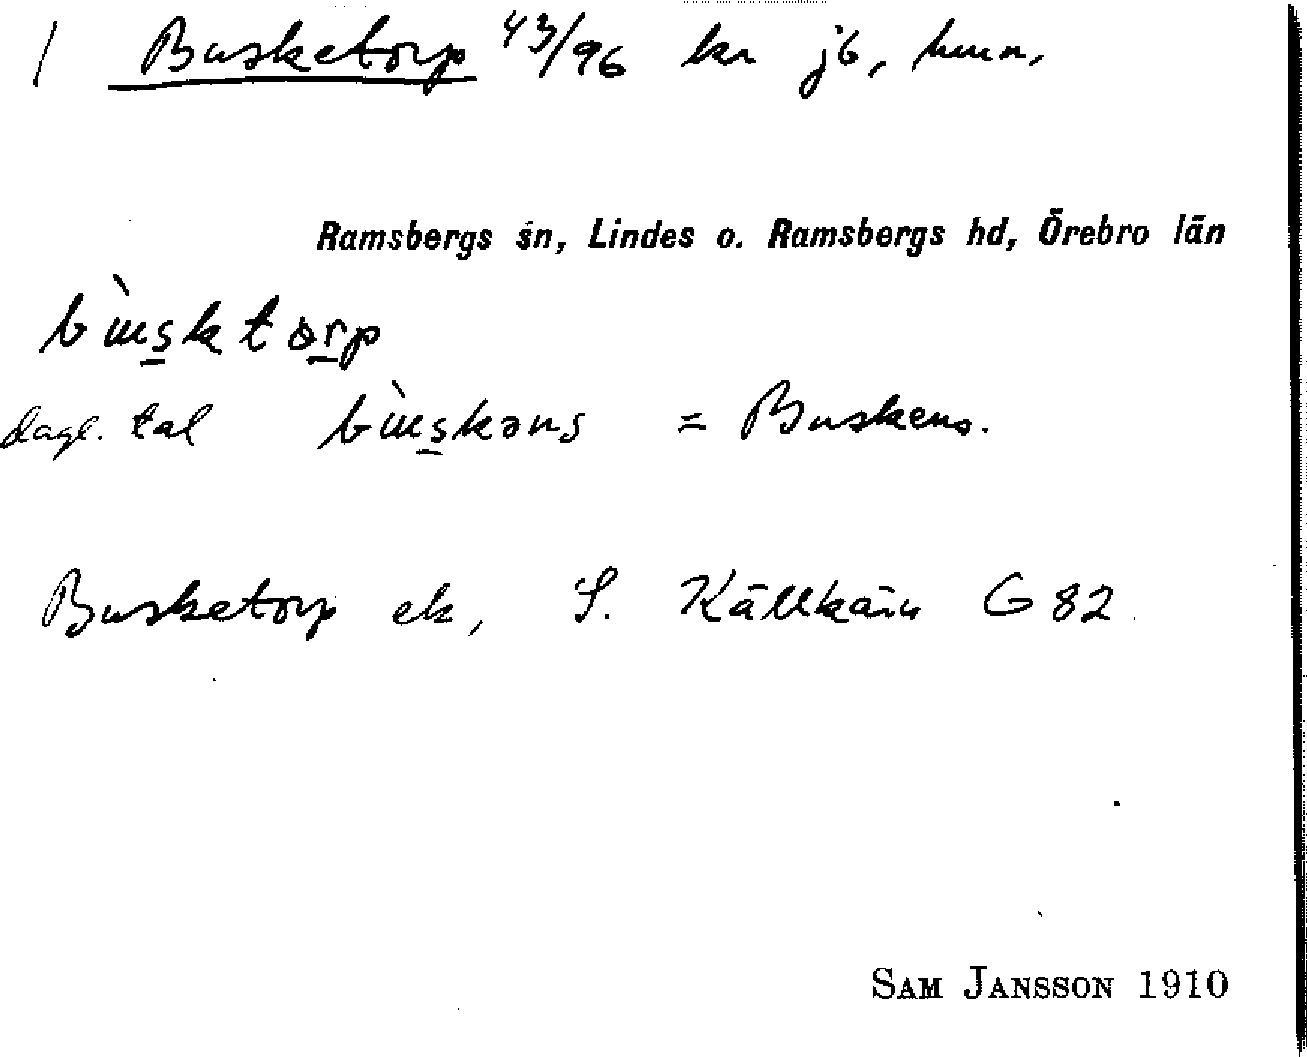 / Busketorp 43/96 kr jb,
Ramsbergs sn, Lindes o. Ramsbergs hd, Örebro län
bùsktorp
dagl. tal bùskəns = Buskens.
Busketorp ek, S. Källkärn G 82
SAM JANSSON 1910